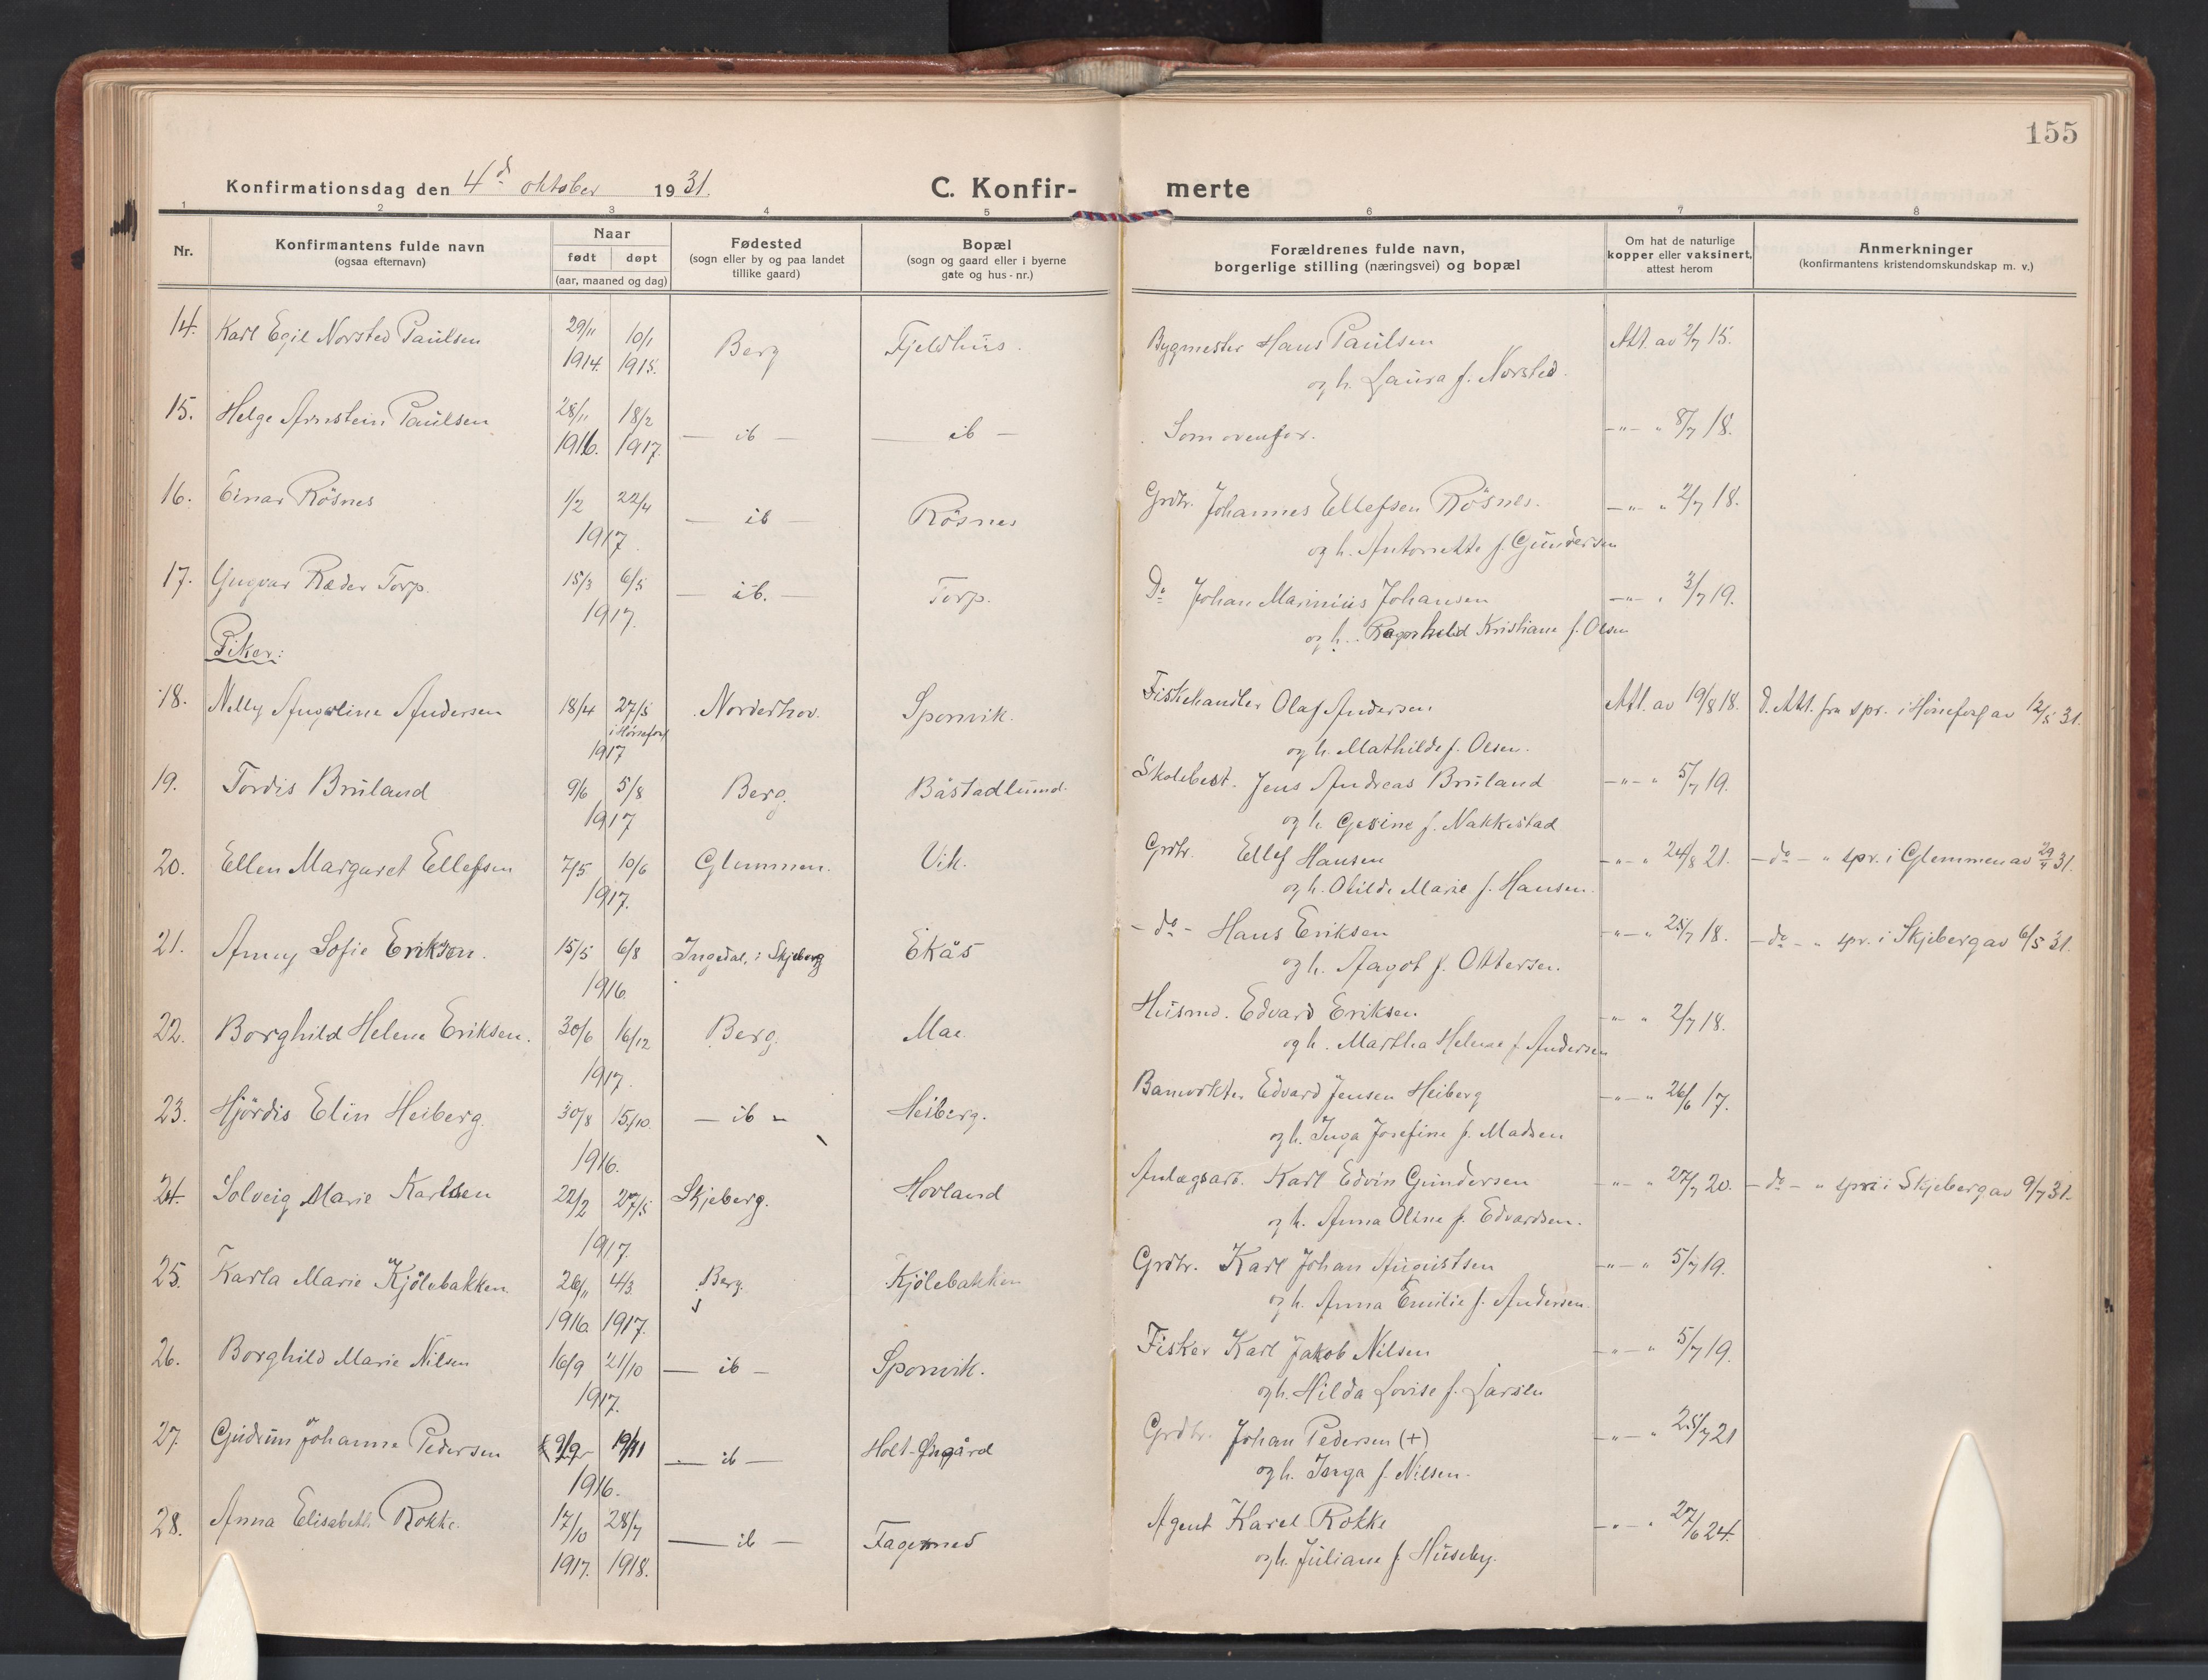 155
Konfirmationsdag den 4d oktober 1931.
C. Konfir-
merte
1 2 3 4 5 6 7 8
Nr.
Konfirmantens fulde navn
(ogsaa efternavn)
Naar
født døpt
(aar, maaned og dag)
Fødested
(sogn eller by og paa landet
tillike gaard)
Bopæl
(sogn og gaard eller i byerne
gate og hus-nr.)
Forældrenes fulde navn,
borgerlige stilling (næringsvei) og bopæl
Om hat de naturlige
kopper eller vaksinert,
attest herom
Anmerkninger
(konfirmantens kristendomskundskap m. v.)
14. Karl Egil Norsted Paulsen 29/11 1914. 10/1 1915. Berg Fjeldhus. Bygmester Hans Paulsen Att. av 2/7 15.
og h. Laura f. Norsted.
15. Helge Arnstein Paulsen 28/11 1916. 18/2 1917. — ib — — ib — Som ovenfor. —"— " 8/7 18.
16. Einar Rösnes 1/2 22/4 1917 — ib — Rösnes Grdbr. Johannes Ellefsen Rösnes. —"— " 2/7 18.
og h. Antonette f. Gundersen
17. Yngvar Ræder Torp. 15/3 6/5 1917. — ib. — Torp. Do Johan Marinius Johansen —"— " 3/7 19.
og h. Ragnhild Kristiane f. Olsen
Piker:
18. Nelly Angeline Andersen 18/4 27/5 i Hönefoss 1917 Norderhov. Sponvik. Fiskehandler Olaf Andersen Att. av 19/8 18. D. Att. fra spr. i Hönefoss av 12/5 31.
og h. Mathilde f. Olsen.
19. Tordis Bruland 9/6 5/8 1917 Berg. Båstadlund. Skolebest. Jens Andreas Bruland —"— " 5/7 19.
og h. Gesine f. Nakkestad
20. Ellen Margaret Ellefsen 7/5 10/6 1917. Glemmen. Vik. Grdbr. Ellef Hansen —"— " 24/8 21. — do — " spr. i Glemmen av 29/4 31.
og h. Otilde Marie f. Hansen.
21. Anny Sofie Eriksen. 15/5 6/8 1916. Ingedal, i Skjeberg Ekås — do — Hans Eriksen —"— " 25/7 18. — do — " spr. i Skjeberg av 6/5 31.
og h. Aagot f. Ottersen.
22. Borghild Helene Eriksen. 30/6 16/12 1917. Berg. Mae. Husmd. Edvard Eriksen —"— " 2/7 18.
og h. Martha Helene f. Andersen
23. Hjördis Elin Heiberg. 30/8 15/10. 1916. — ib — Heiberg. Banevokter Edvard Jensen Heiberg —"— " 26/6 17.
og h. Inga Josefine f. Madsen
24. Solveig Marie Karlsen 22/2 27/5 1917. Skjeberg. Hovland Anlægsarb. Karl Edvin Gundersen —"— " 27/7 20. — do — " spr. i Skjeberg av 9/7 31.
og h. Anna Oline f. Edvardsen.
25. Karla Marie Kjölebakken 26/11 1916. 4/3. 1917. Berg. Kjölebakken Grdbr. Karl Johan Augustsen —"— " 5/7 19.
og h. Anna Emilie f. Andersen.
26. Borghild Marie Nilsen 16/9 21/10 1917. — ib — Sponvik. Fisker Karl Jakob Nilsen —"— " 5/7 19.
og h. Hilda Lovise f. Larsen
27. Gudrun Johanne Pedersen 9/9 19/11 1916. — ib — Holt-Ødegård Grdbr. Johan Pedersen (+) —"— " 25/7 21
og h. Inga f. Nilsen.
28. Anna Elisabeth Rokke. 17/10 1917. 28/7 1918. — ib — Fagernes Agent Karel Rokke —"— " 27/6 24.
og h. Juliane f. Huseby.